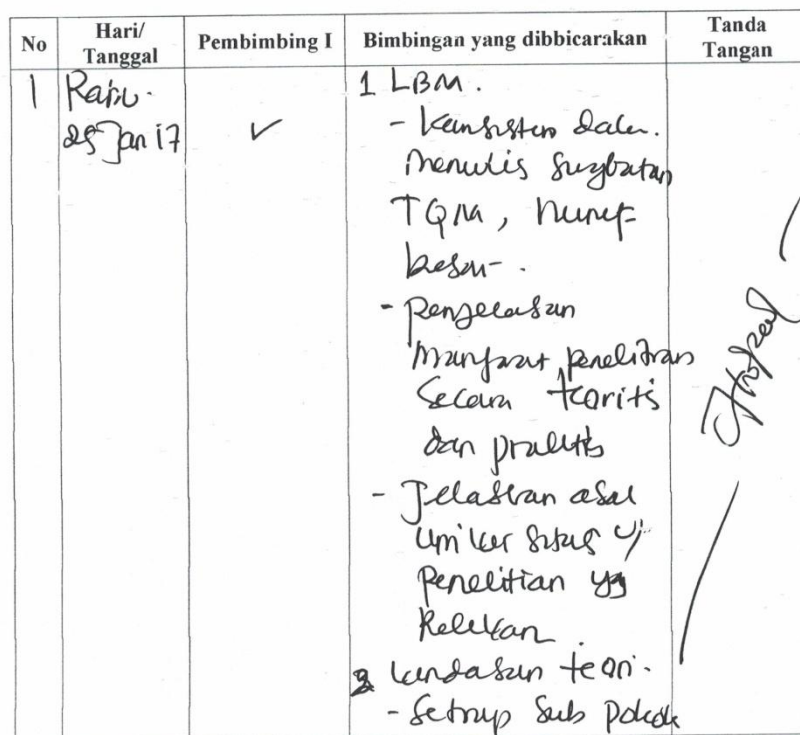 No
Hari/
Tanggal
Pembimbing I
Bimbingan yang dibbicarakan
Tanda
Tangan
1
Rabu.
25 Jan 17
✓
1 LBM.
- Konsisten dalam
menulis singkatan
TQM, huruf
besar.
- penjelasan
manfaat penelitian
secara teoritis
dan praktis
- Jelaskan asal
universitas
Penelitian yg
Relevan.
2 Landasan teori.
- Setiap Sub pokok